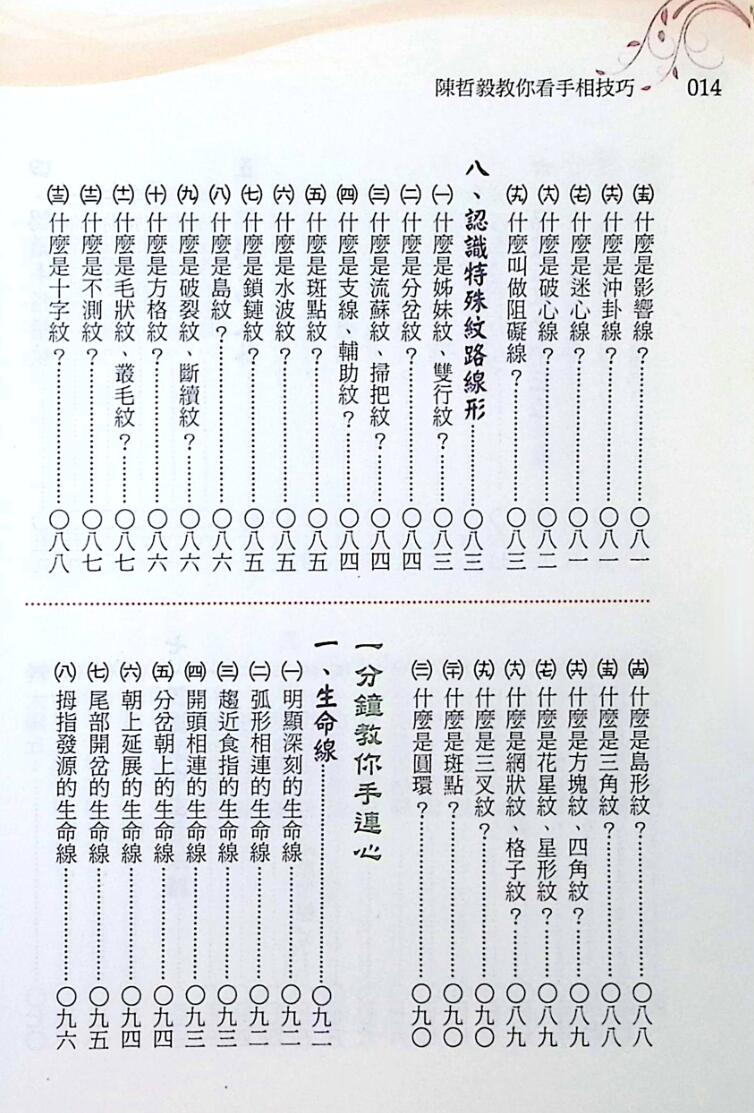 陳哲毅教你看手相技巧 014
(十五)什麼是影響線？……〇八一
(十六)什麼是沖卦線？……〇八一
(十七)什麼是迷心線？……〇八一
(十八)什麼是破心線？……〇八二
(十九)什麼叫做阻礙線？……〇八三
八、認識特殊紋路線形……〇八三
㈠什麼是姊妹紋、雙行紋？……〇八三
㈡什麼是分岔紋？……〇八四
㈢什麼是流蘇紋、掃把紋？……〇八四
㈣什麼是支線、輔助紋？……〇八四
㈤什麼是斑點紋？……〇八五
㈥什麼是水波紋？……〇八五
㈦什麼是鎖鏈紋？……〇八五
㈧什麼是島紋？……〇八六
㈨什麼是破裂紋、斷續紋？……〇八六
㈩什麼是方格紋？……〇八六
(十一)什麼是毛狀紋、叢毛紋？……〇八七
(十二)什麼是不測紋？……〇八七
(十三)什麼是十字紋？……〇八八
(十四)什麼是島形紋？……〇八八
(十五)什麼是三角紋？……〇八八
(十六)什麼是方塊紋、四角紋？……〇八九
(十七)什麼是花星紋、星形紋？……〇八九
(十八)什麼是網狀紋、格子紋？……〇八九
(十九)什麼是三叉紋？……〇九〇
(二十)什麼是斑點？……〇九〇
(二一)什麼是圓環？……〇九〇
一分鐘教你手連心
一、生命線……〇九二
㈠明顯深刻的生命線……〇九二
㈡弧形相連的生命線……〇九二
㈢趨近食指的生命線……〇九三
㈣開頭相連的生命線……〇九三
㈤分岔朝上的生命線……〇九四
㈥朝上延展的生命線……〇九四
㈦尾部開岔的生命線……〇九五
㈧拇指發源的生命線……〇九六